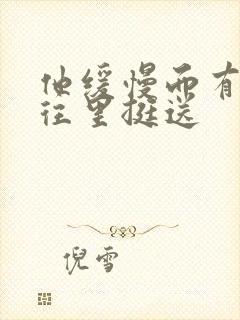 他缓慢而有
往里挺送
倪雪